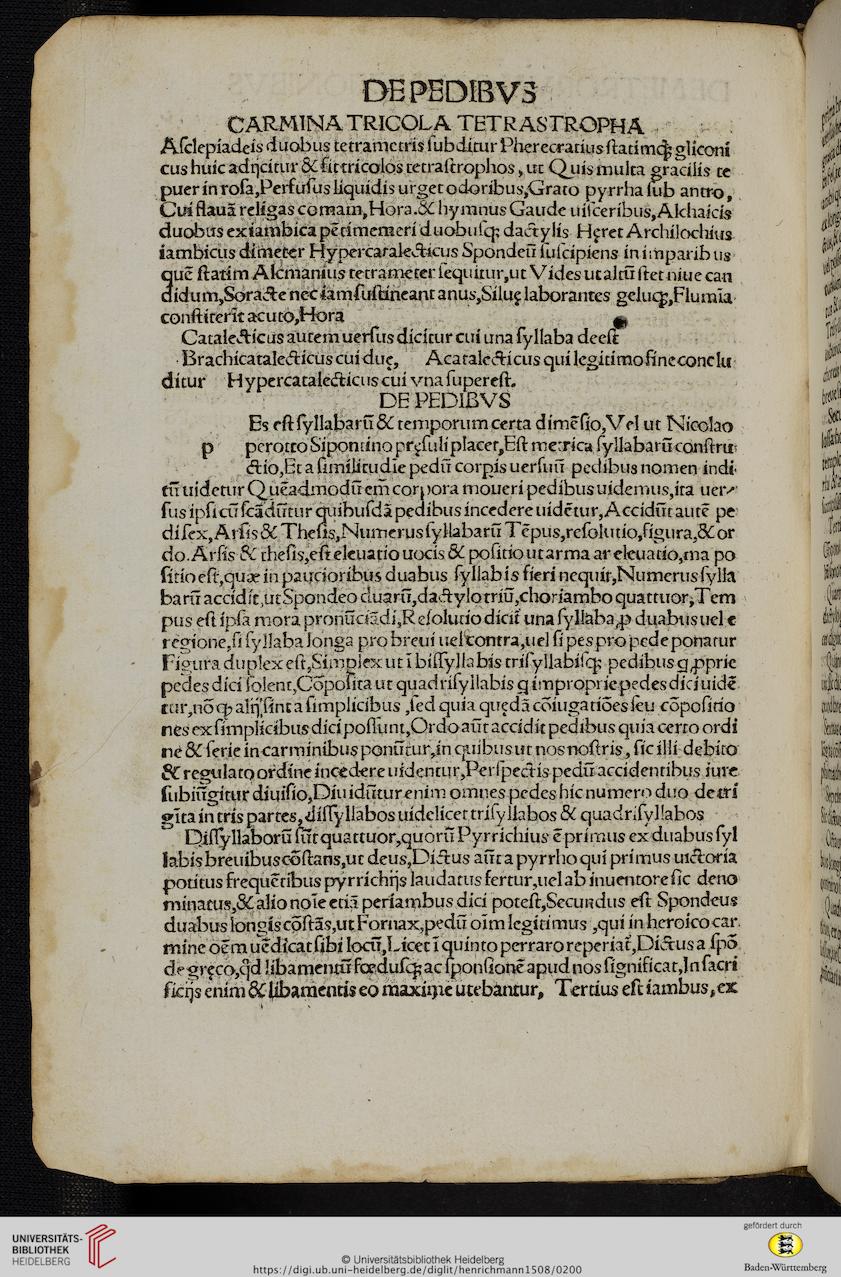 DE PEDIBVS
CARMINA TRICOLA TETRASTROPHA
Aſclepiadeis duobus tetrametris ſubditur Pherecratius ſtatimqꝫ gliconi
cus huic adrijcitur & fit tricolos tetraſtrophos, ut Quis multa gracilis te
puer in roſa,Perfuſus liquidis urget odoribus,Grato pyrrha ſub antro,
Cui flauā religas comam,Hora.& hymnus Gaude uiſceribus,Alchaicis
duobus ex iambica pētimemeri duobuſqꝫ dactylis Hęret Archilochius
iambicus dimeter Hypercatalecticus Spondeū ſuſcipiens in imparibus
quē ſtatim Alcmanius tetrameter ſequitur,ut Vides ut altū ſtet niue can
didum,Soracte nec iam ſuſtineant anus,Siluę laborantes geluqꝫ,Flumia
conſtiterit acuto,Hora
Catalecticus autem uerſus dicitur cui una ſyllaba deeſt
Brachicatalecticus cui duę, Acatalecticus qui legitimo fine conclu
ditur Hypercatalecticus cui vna ſupereſt.
DE PEDIBVS
Es eſt ſyllabarū & temporum certa dimēſio,Vel ut Nicolao
p perotto Sipontino pręſuli placet,Eſt metrica ſyllabarū conſtru
ctio,Et a ſimilitudie pedū corpis uerſuū pedibus nomen indi
tū uidetur Quēadmodū em̄ corpora moueri pedibus uidemus,ita uer
ſus ipſi cū ſcādūtur quibuſdā pedibus incedere uidētur,Accidūt autē pe
di ſex,Arſis & Theſis,Numerus ſyllabarū Tēpus,reſolutio,figura,& or
do.Arſis & theſis,eſt eleuatio uocis & poſitio ut arma ar eleuatio,ma po
ſitio eſt,quæ in paucioribus duabus ſyllabis fieri nequit,Numerus ſylla
barū accidit,ut Spondeo duarū,dactylo triū,choriambo quattuor,Tem
pus eſt ipſa mora pronūciādi,Reſolutio dicit̄ una ſyllaba,ꝓ duabus uel e
regione,ſi ſyllaba longa pro breui uel contra,uel ſi pes pro pede ponatur
Figura duplex eſt,Simplex ut ī biſſyllabis triſyllabiſqꝫ pedibus q ꝓprie
pedes dici ſolent,Cōpoſita ut quadriſyllabis q improprie pedes dici uidē
tur,nō ꝙ alij ſint a ſimplicibus ,ſed quia quędā cōiugatiōes ſeu cōpoſitio
nes ex ſimplicibus dici poſſunt,Ordo aūt accidit pedibus quia certo ordi
ne & ſerie in carminibus ponūtur,in quibus ut nos noſtris, ſic illi debito
& regulato ordine incedere uidentur,Perſpectis pedū accidentibus iure
ſubiūgitur diuiſio,Diuidūtur enim omnes pedes hic numero duo de tri
gīta in tris partes,diſſyllabos uidelicet triſyllabos & quadriſyllabos
Diſſyllaborū ſūt quattuor,quorū Pyrrichius ē primus ex duabus ſyl
labis breuibus cōſtans,ut deus,Dictus aūt a pyrrho qui primus uictoria
potitus frequētibus pyrrichijs laudatus fertur,uel ab inuentore ſic deno
minatus,& alio noīe etiā periambus dici poteſt,Secundus eſt Spondeus
duabus longis cōſtās,ut Fornax,pedū oīm legitimus ,qui in heroico car
mine oēm uēdicat ſibi locū,Licet ī quinto perraro reperiat̄,Dictus a ſpō
de gręco,qd̄ libamentū fœduſqꝫ ac ſponſionē apud nos ſignificat,In ſacri
ficijs enim & libamentis eo maxime utebantur, Tertius eſt iambus,ex
UNIVERSITÄTS-
BIBLIOTHEK
HEIDELBERG
© Universitätsbibliothek Heidelberg
https://digi.ub.uni-heidelberg.de/diglit/henrichmann1508/0200
gefördert durch
Baden-Württemberg